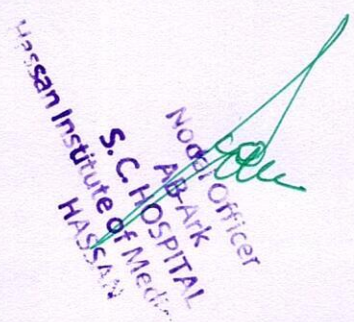 Nodal Officer
AB-Ark
S. C. HOSPITAL
Hassan Institute of Medi
HASSAN